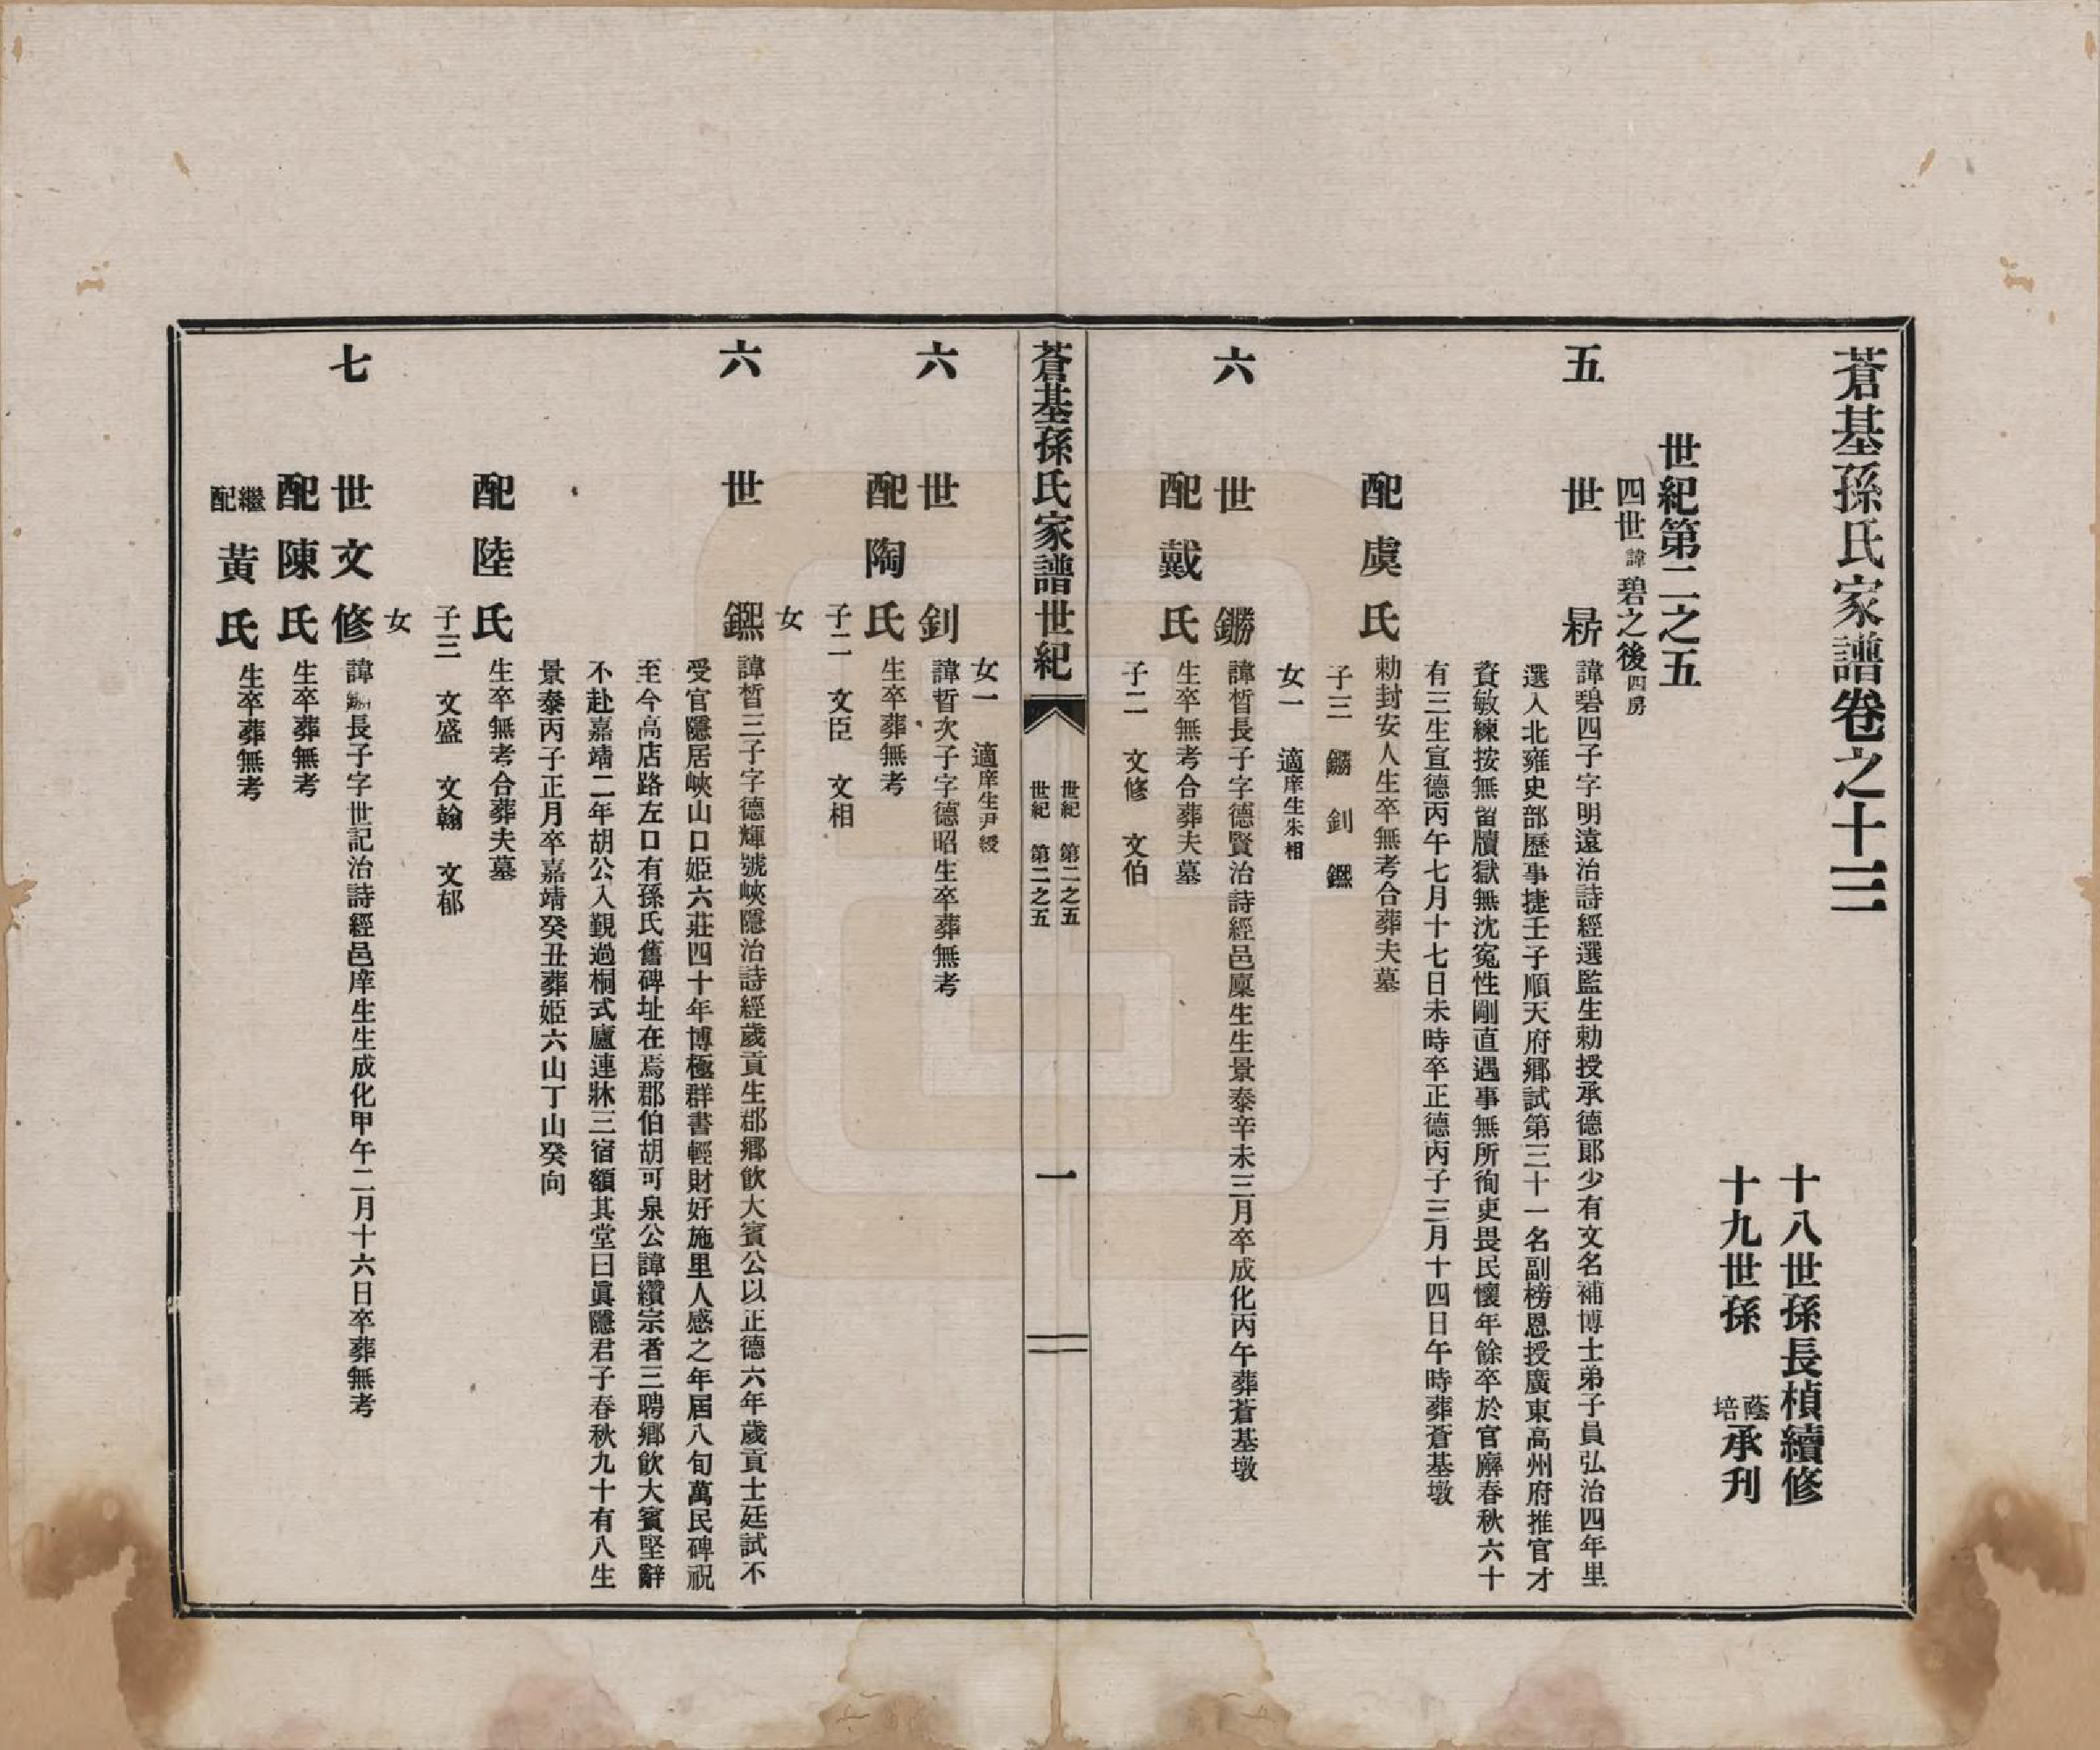 蒼基孫氏家譜卷之十三
十八世孫長楨續修
十九世孫蔭培承刊
世紀第二之五
四世諱碧之後四房
五世
諱碧四子字明遠治詩經選監生勅授承德郎少有文名補博士弟子員弘治四年里
選入北雍史部歷事捷壬子順天府鄉試第三十一名副榜恩授廣東高州府推官才
資敏練按無留牘獄無沈冤性剛直遇事無所徇吏畏民懷年餘卒於官廨春秋六十
有三生宣德丙午七月十七日未時卒正德丙子三月十四日午時葬蒼基墩
配虞氏勅封安人生卒無考合葬夫墓
子三 鐊 釗 鑂
女一 適庠生朱相
六世
諱晳長子字德賢治詩經邑廩生生景泰辛未三月卒成化丙午葬蒼基墩
配戴氏生卒無考合葬夫墓
子二 文修 文伯
蒼基孫氏家譜世紀
世紀 第二之五
世紀 第二之五
一
女一 適庠生尹綬
六世釗諱晳次子字德昭生卒葬無考
配陶氏生卒葬無考
子二 文臣 文相
女
六世
諱晳三子字德輝號峽隱治詩經歲貢生郡鄉飲大賓公以正德六年歲貢士廷試不
受官隱居峽山口姬六莊四十年博極群書輕財好施里人感之年屆八旬萬民碑祝
至今高店路左口有孫氏舊碑址在焉郡伯胡可泉公諱纘宗者三聘鄉飲大賓堅辭
不赴嘉靖二年胡公入覲過桐式廬連牀三宿額其堂曰眞隱君子春秋九十有八生
景泰丙子正月卒嘉靖癸丑葬姬六山丁山癸向
配陸氏生卒無考合葬夫墓
子三 文盛 文翰 文郁
女
七世文修諱長子字世記治詩經邑庠生生成化甲午二月十六日卒葬無考
配陳氏生卒葬無考
繼配黃氏生卒葬無考